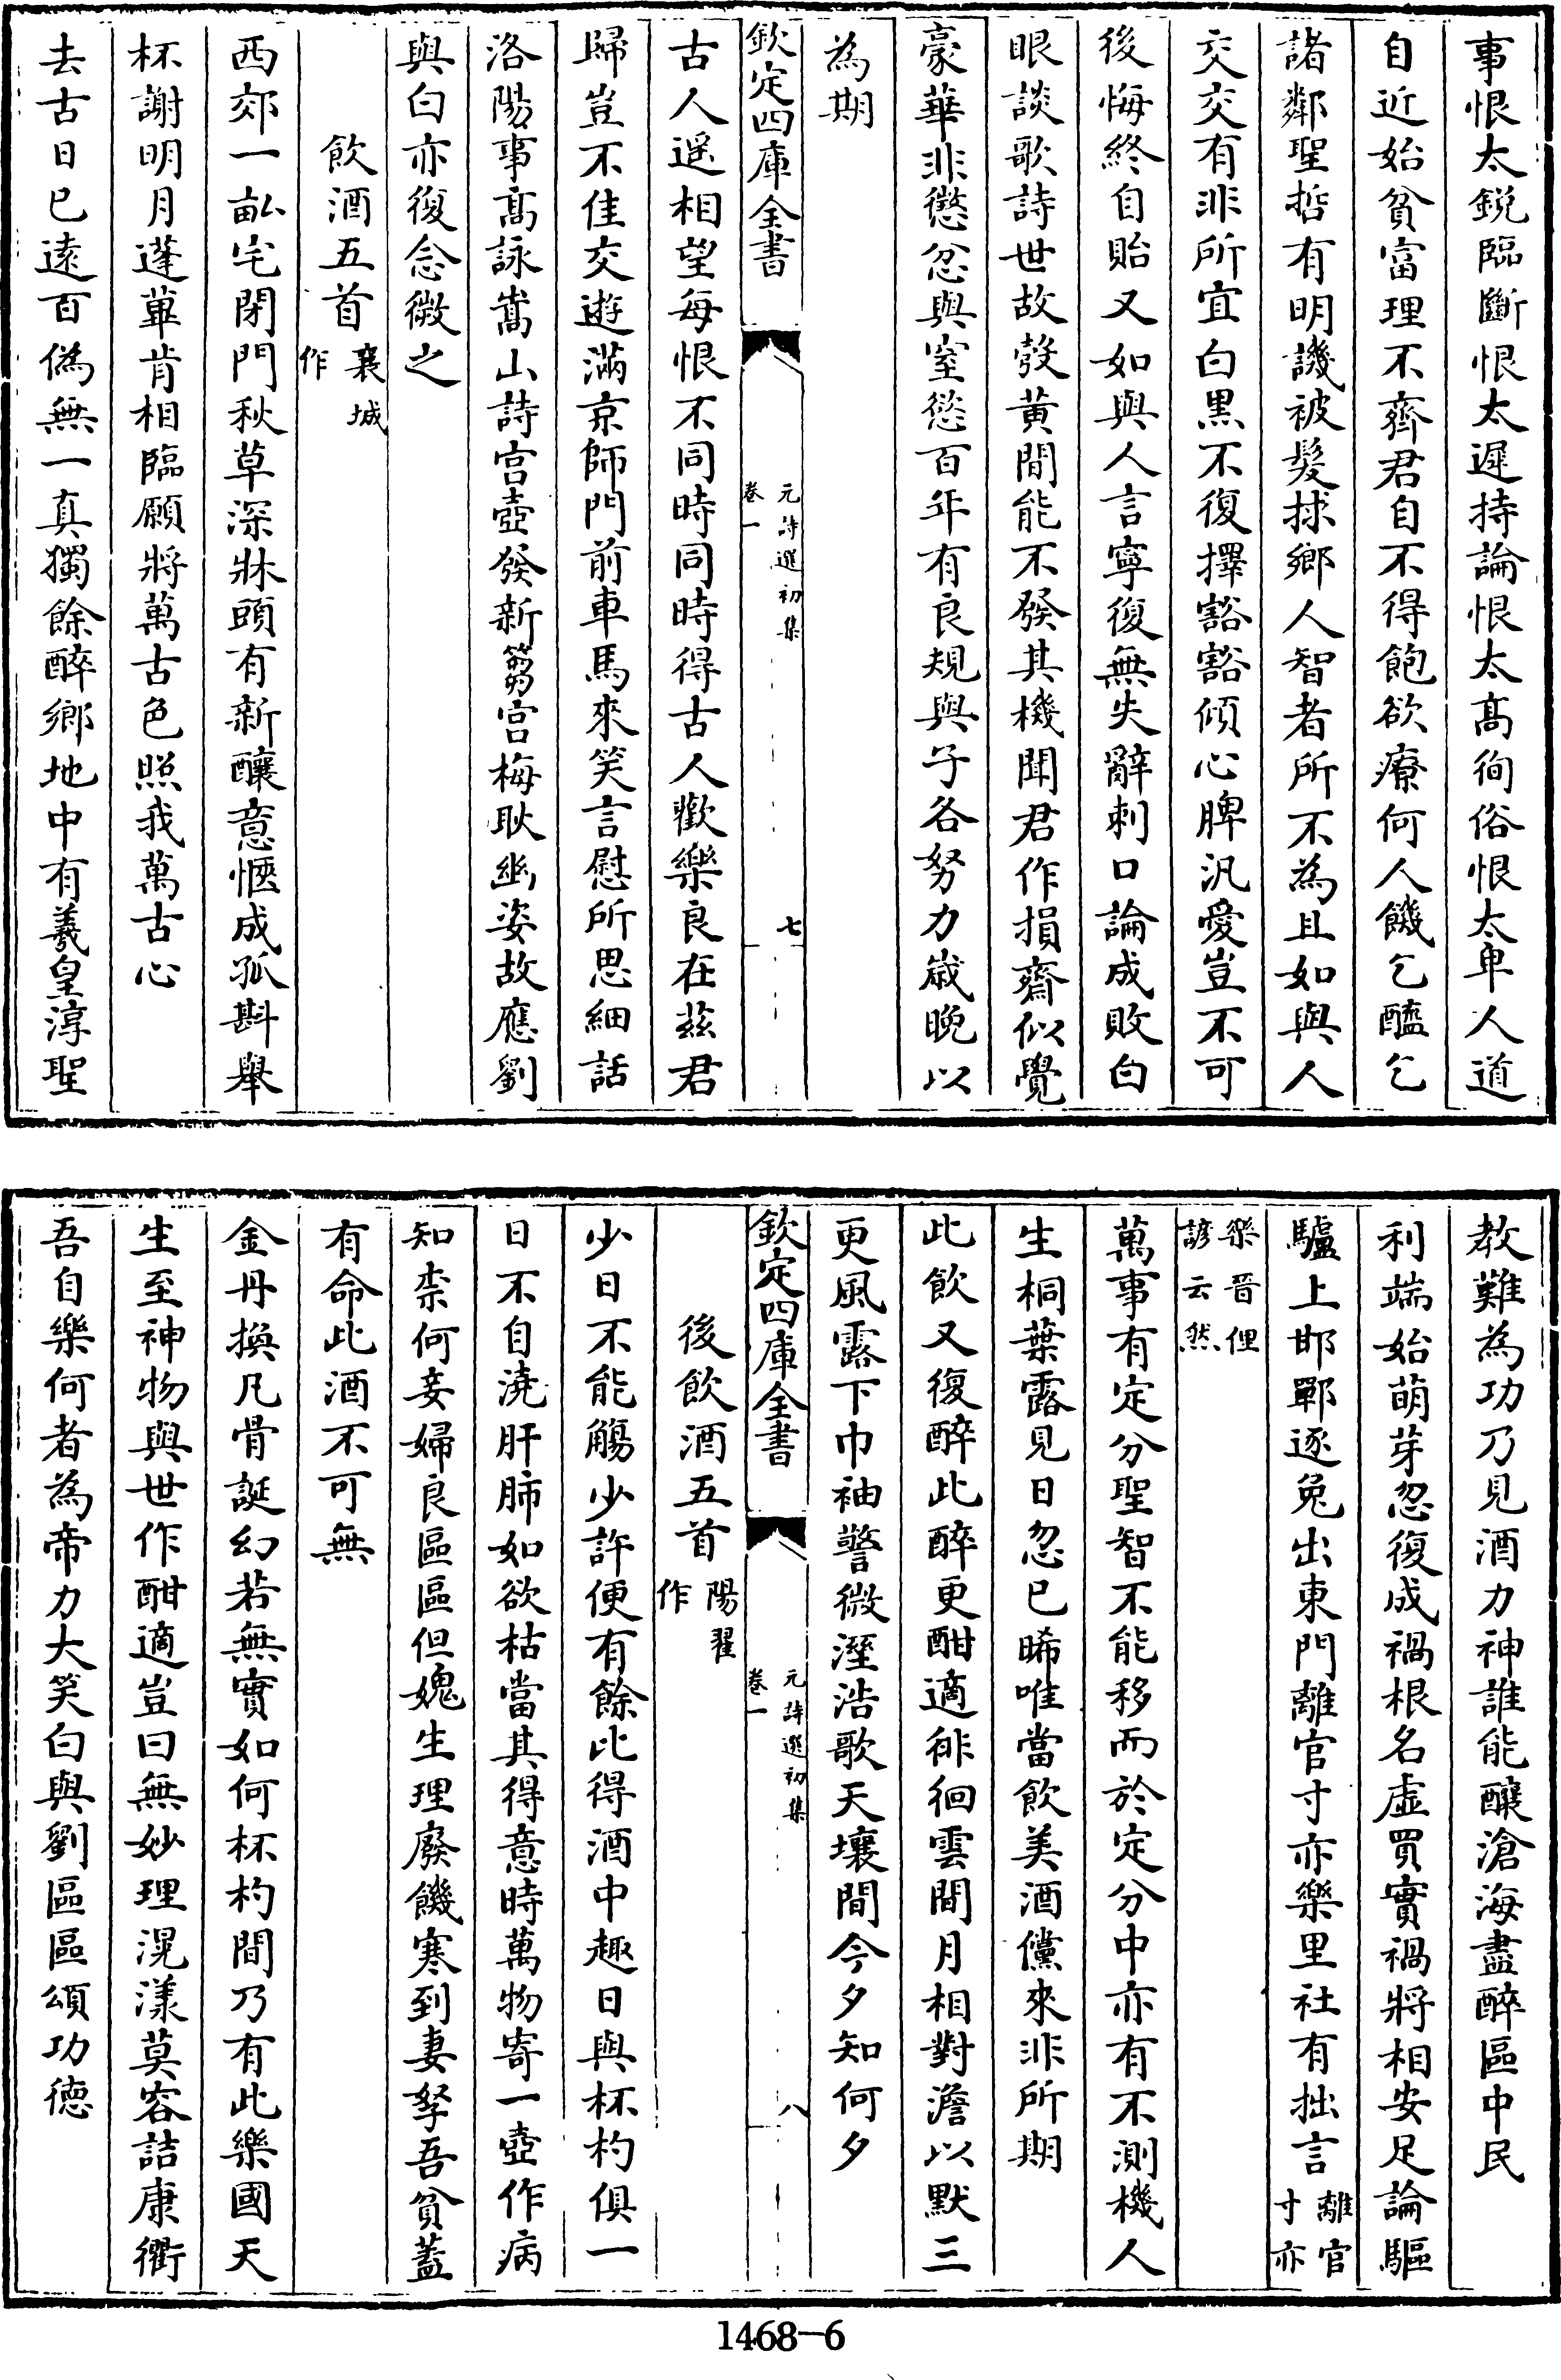 事恨太鋭臨斷恨太遲持論恨太髙徇俗恨太卑人道
自近始貧富理不齊君自不得飽欲療何人饑乞醯乞
諸鄰聖哲有明譏被髮捄鄉人智者所不為且如與人
交交有非所宜白黒不復擇豁豁傾心脾汎愛豈不可
後悔終自貽又如與人言寧復無失辭刺口論成敗白
眼談歌詩世故發黄間能不發其機聞君作損齋似覺
豪華非懲忿與窒慾百年有良規與子各努力嵗晚以
為期
欽定四庫全書
元詩選初集
卷一
七
古人遥相望每恨不同時同時得古人歡樂良在兹君
歸豈不佳交遊滿京師門前車馬來笑言慰所思細話
洛陽事髙詠嵩山詩宫壺發新篘宫梅耿幽姿故應劉
與白亦復念微之
飲酒五首襄城
作
西郊一畆宅閉門秋草深牀頭有新釀意愜成孤斟舉
杯謝明月蓬蓽肯相臨願將萬古色照我萬古心
去古日已逺百偽無一真獨餘醉鄉地中有羲皇淳聖
教難為功乃見酒力神誰能釀滄海盡醉區中民
利端始萌芽忽復成禍根名虚買實禍將相安足論驅
驢上邯鄲逐兔出東門離官寸亦樂里社有拙言離官
寸亦
樂晋俚
諺云然
萬事有定分聖智不能移而於定分中亦有不測機人
生桐葉露見日忽已晞唯當飲美酒儻來非所期
此飲又復醉此醉更酣適徘徊雲間月相對澹以默三
更風露下巾袖警微溼浩歌天壤間今夕知何夕
欽定四庫全書
元詩選初集
卷一
八
後飲酒五首陽翟
作
少日不能觴少許便有餘比得酒中趣日與杯杓俱一
日不自澆肝肺如欲枯當其得意時萬物寄一壺作病
知柰何妾婦良區區但媿生理廢饑寒到妻孥吾貧蓋
有命此酒不可無
金丹換凡骨誕幻若無實如何杯杓間乃有此樂國天
生至神物與世作酣適豈曰無妙理滉漾莫容詰康衢
吾自樂何者為帝力大笑白與劉區區頌功徳
1468-6